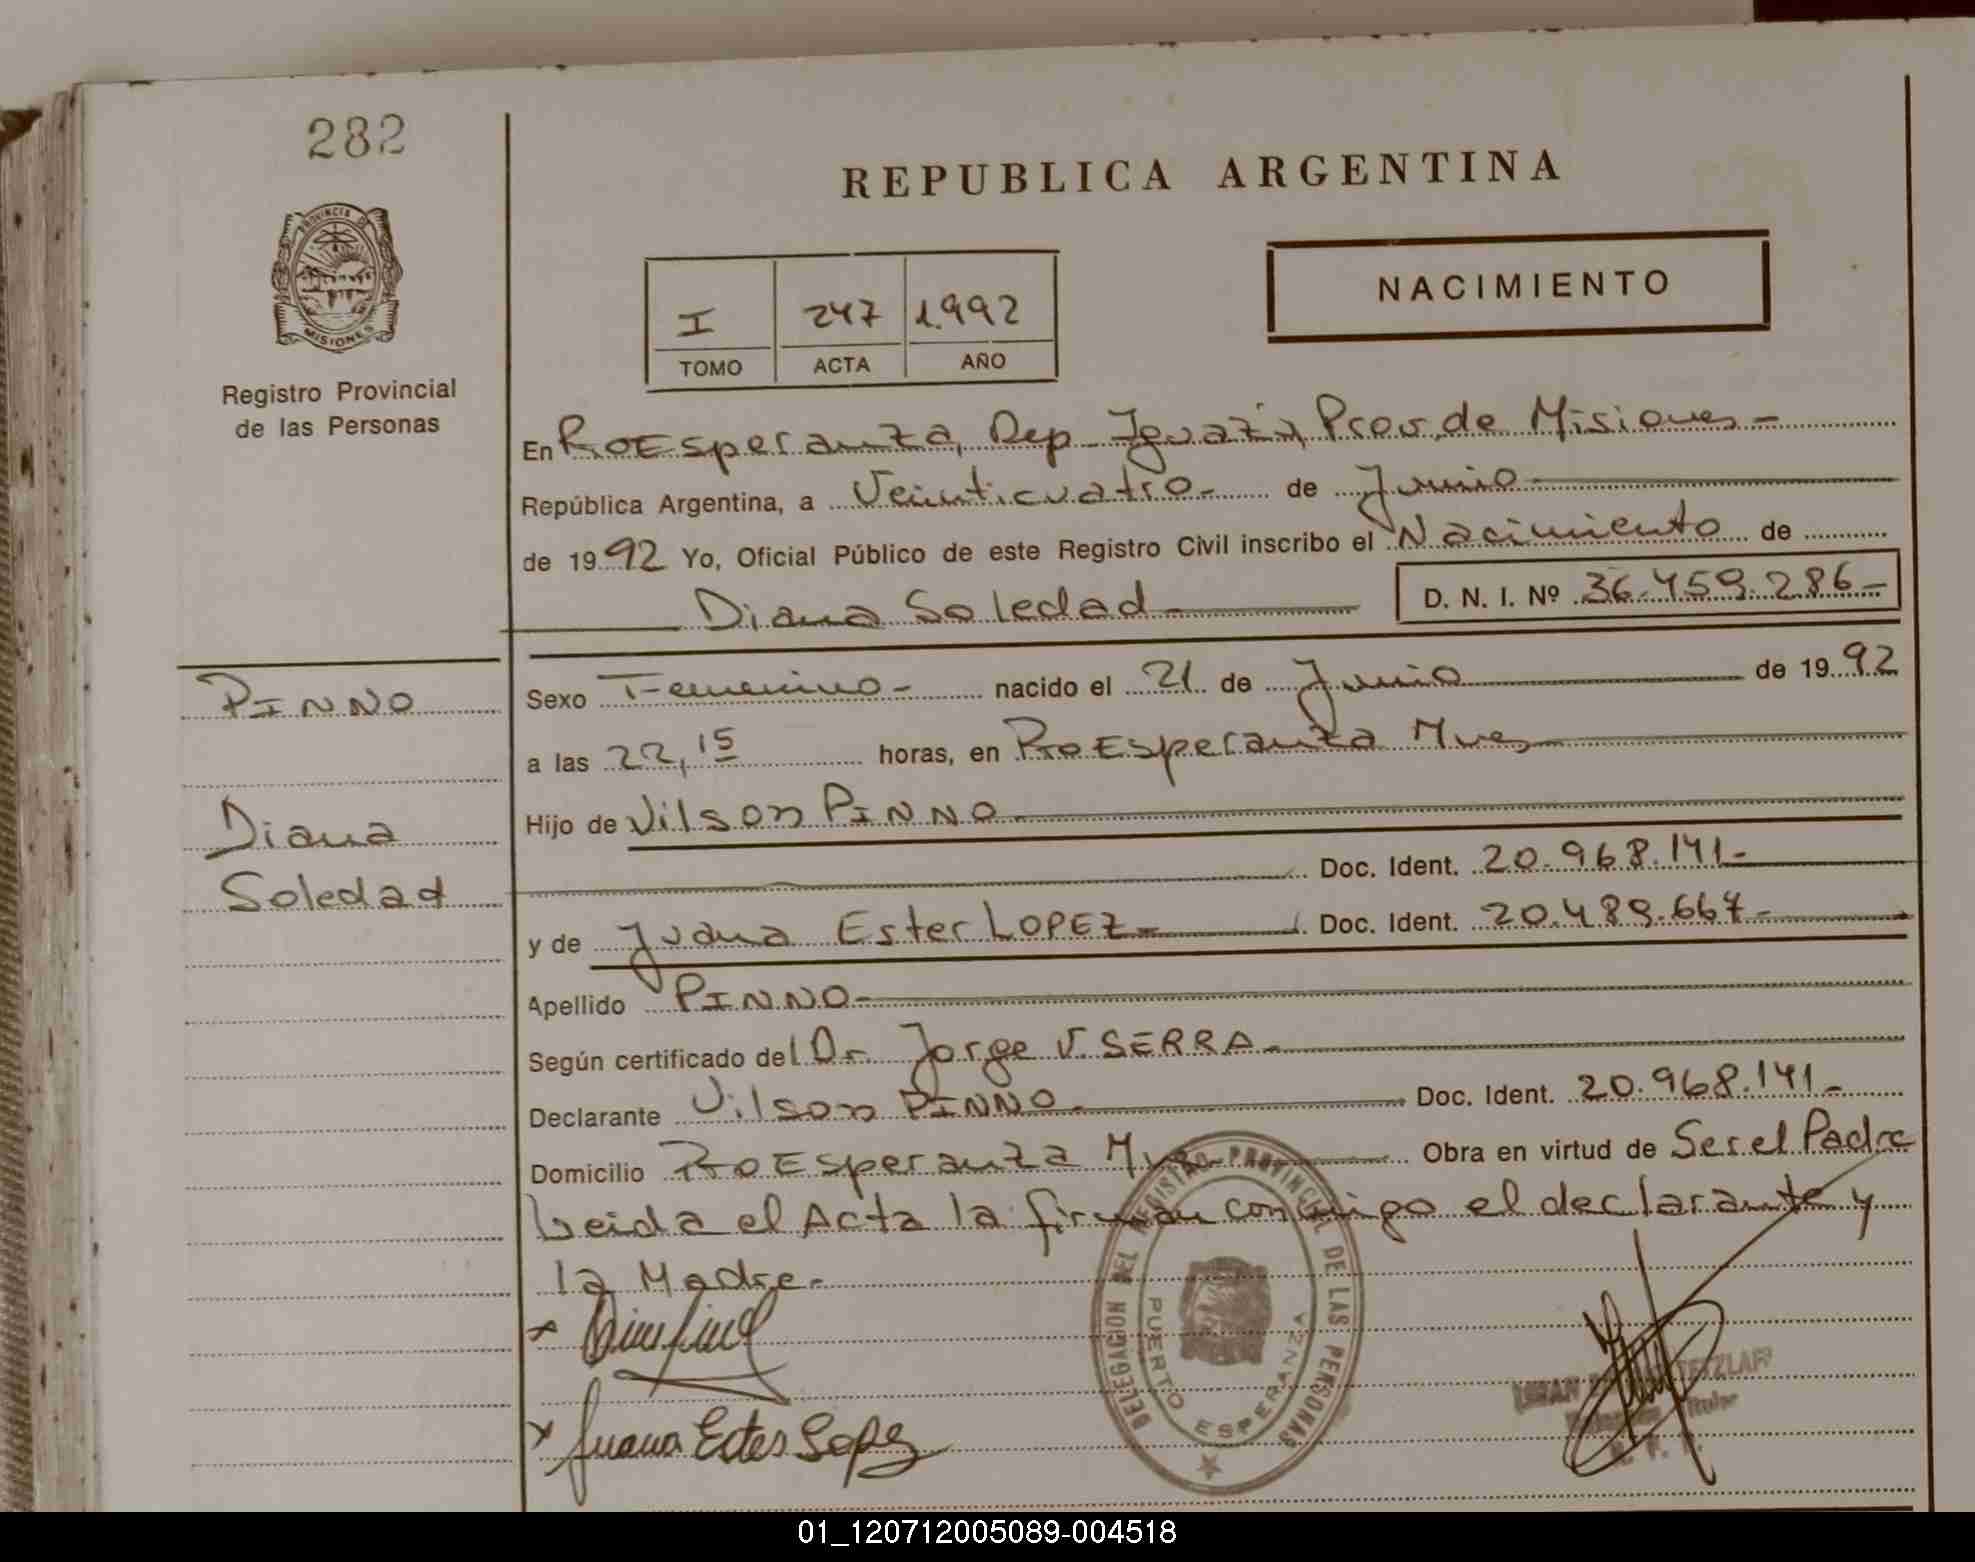 282
PROVINCIA DE
MISIONES
Registro Provincial
de las Personas
REPUBLICA ARGENTINA
NACIMIENTO
I 247 1.992
TOMO ACTA AÑO
En Pto Esperanza, Dep. Iguazú, Prov. de Misiones -
República Argentina, a Veinticuatro - de Junio
de 1992 Yo, Oficial Público de este Registro Civil inscribo el Nacimiento de
Diana Soledad D. N. I. Nº 36.459.286-
PINNO
Diana
Soledad
Sexo Femenino - nacido el 21 de Junio de 1992
a las 22,15 horas, en Pto Esperanza Mnes
Hijo de Vilson PINNO
Doc. Ident. 20.968.141-
y de Juana Ester LOPEZ - Doc. Ident. 20.489.667-
Apellido PINNO -
Según certificado del Dr. Jorge V. SERRA -
Declarante Vilson PINNO - Doc. Ident. 20.968.141-
Domicilio Pto Esperanza Mnes Obra en virtud de Ser el Padre
Leida el Acta la firman conmigo el declarante y
la Madre -
x
x Juana Ester Lopez
DELEGACION DEL REGISTRO PROVINCIAL DE LAS PERSONAS
PUERTO ESPERANZA
01_120712005089-004518